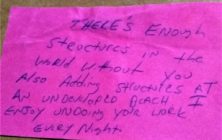 THERE'S ENOUGH
STRUCTURES IN THE
WORLD WITHOUT YOU
ALSO ADDING STRUCTURES AT
AN UNDERVOLD BEACH I
ENJOY UNDOING YOUR WORK
EVERY NIGHT